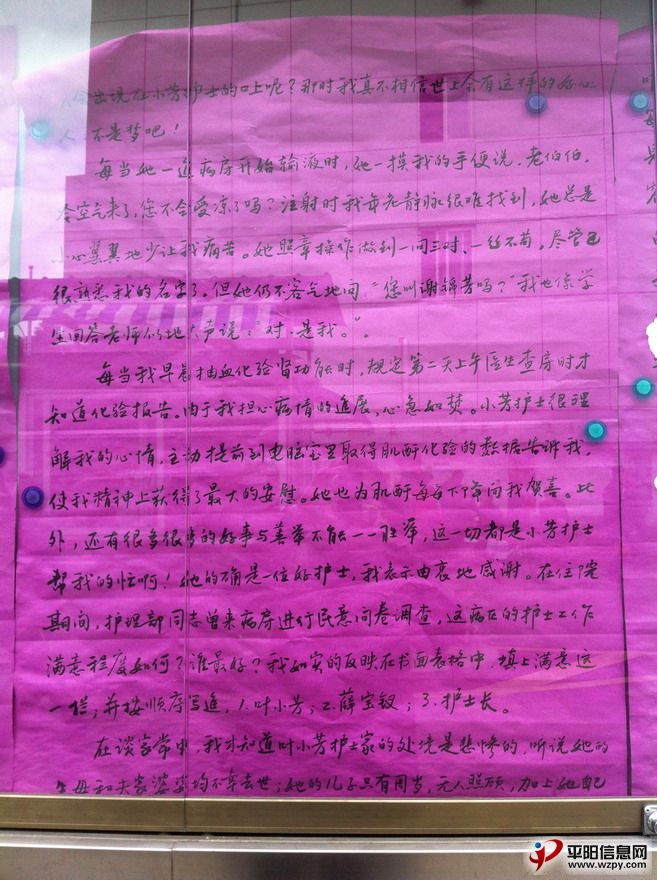 会出现在小芳护士的口上呢？那时我真不相信世上会有这样的好心
人，不是梦吧！
每当她一进病房开始输液时，她一摸我的手便说，老伯伯，
冷空气来了，您不会受凉了吗？注射时我年老静脉很难找到，她总是
小心翼翼地少让我痛苦。她照章操作做到一问三对、一丝不苟，尽管已
很熟悉我的名字了。但她仍不客气地问："您叫谢锦芳吗？"我也像学
生回答老师似地大声说："对，是我。"。
每当我早晨抽血化验肾功能时，规定第二天上午医生查房时才
知道化验报告。由于我担心病情的進展，心急如焚。小芳护士很理
解我的心情，主动提前到电脑室里取得肌酐化验的数据告诉我，
使我精神上获得了最大的安慰。她也为肌酐每每下降向我贺喜。此
外，还有很多很多的好事与善举不能一一胜举，这一切都是小芳护士
帮我的忙啊！她的确是一位好护士，我表示由衷地感谢。在住院
期间，护理部同志曾来病房进行民意问卷调查，这病区的护士工作
满意程度如何？谁最好？我如实的反映在书面表格中，填上满意这
一栏，并按顺序写進，1.叶小芳；2.薛宝钗；3.护士长。
在谈家常中，我才知道叶小芳护士家的处境是悲惨的，听说她的
父母和夫家婆婆均不幸去世；她的儿子只有周岁，无人照顾，加上她自己
平阳信息网
www.wzpy.com